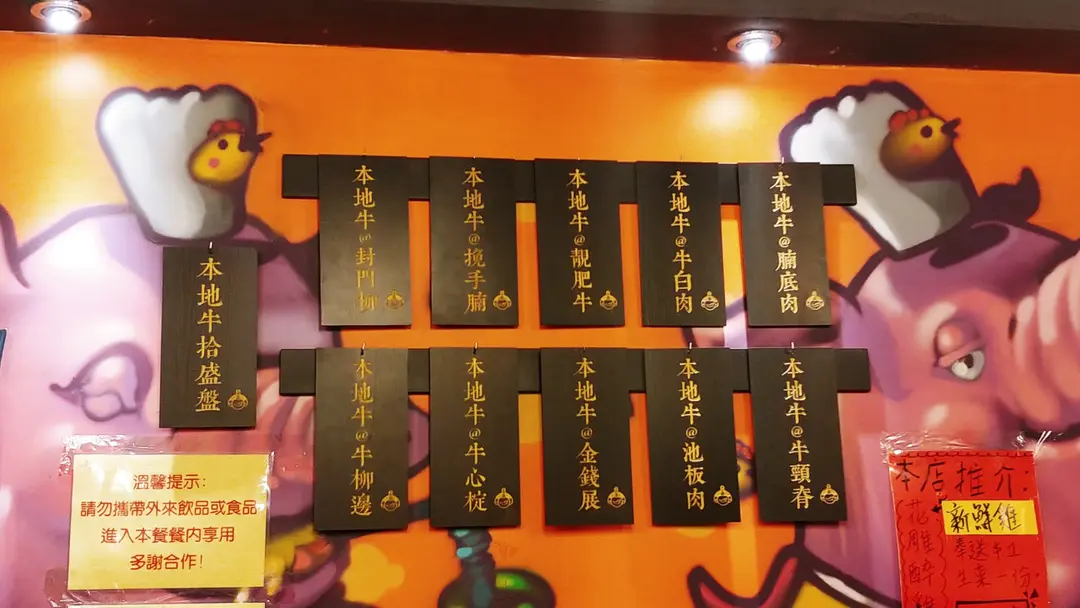 本地牛拾盛盤
本地牛@封門柳
本地牛@挽手腩
本地牛@靚肥牛
本地牛@牛白肉
本地牛@腩底肉
本地牛@牛柳邊
本地牛@牛心椗
本地牛@金錢展
本地牛@池板肉
本地牛@牛頸脊
溫馨提示:
請勿攜帶外來飲品或食品
進入本餐餐内享用
多謝合作!
本店推介:
新鮮雞
花雕醉雞
奉送手工
生菜一份.